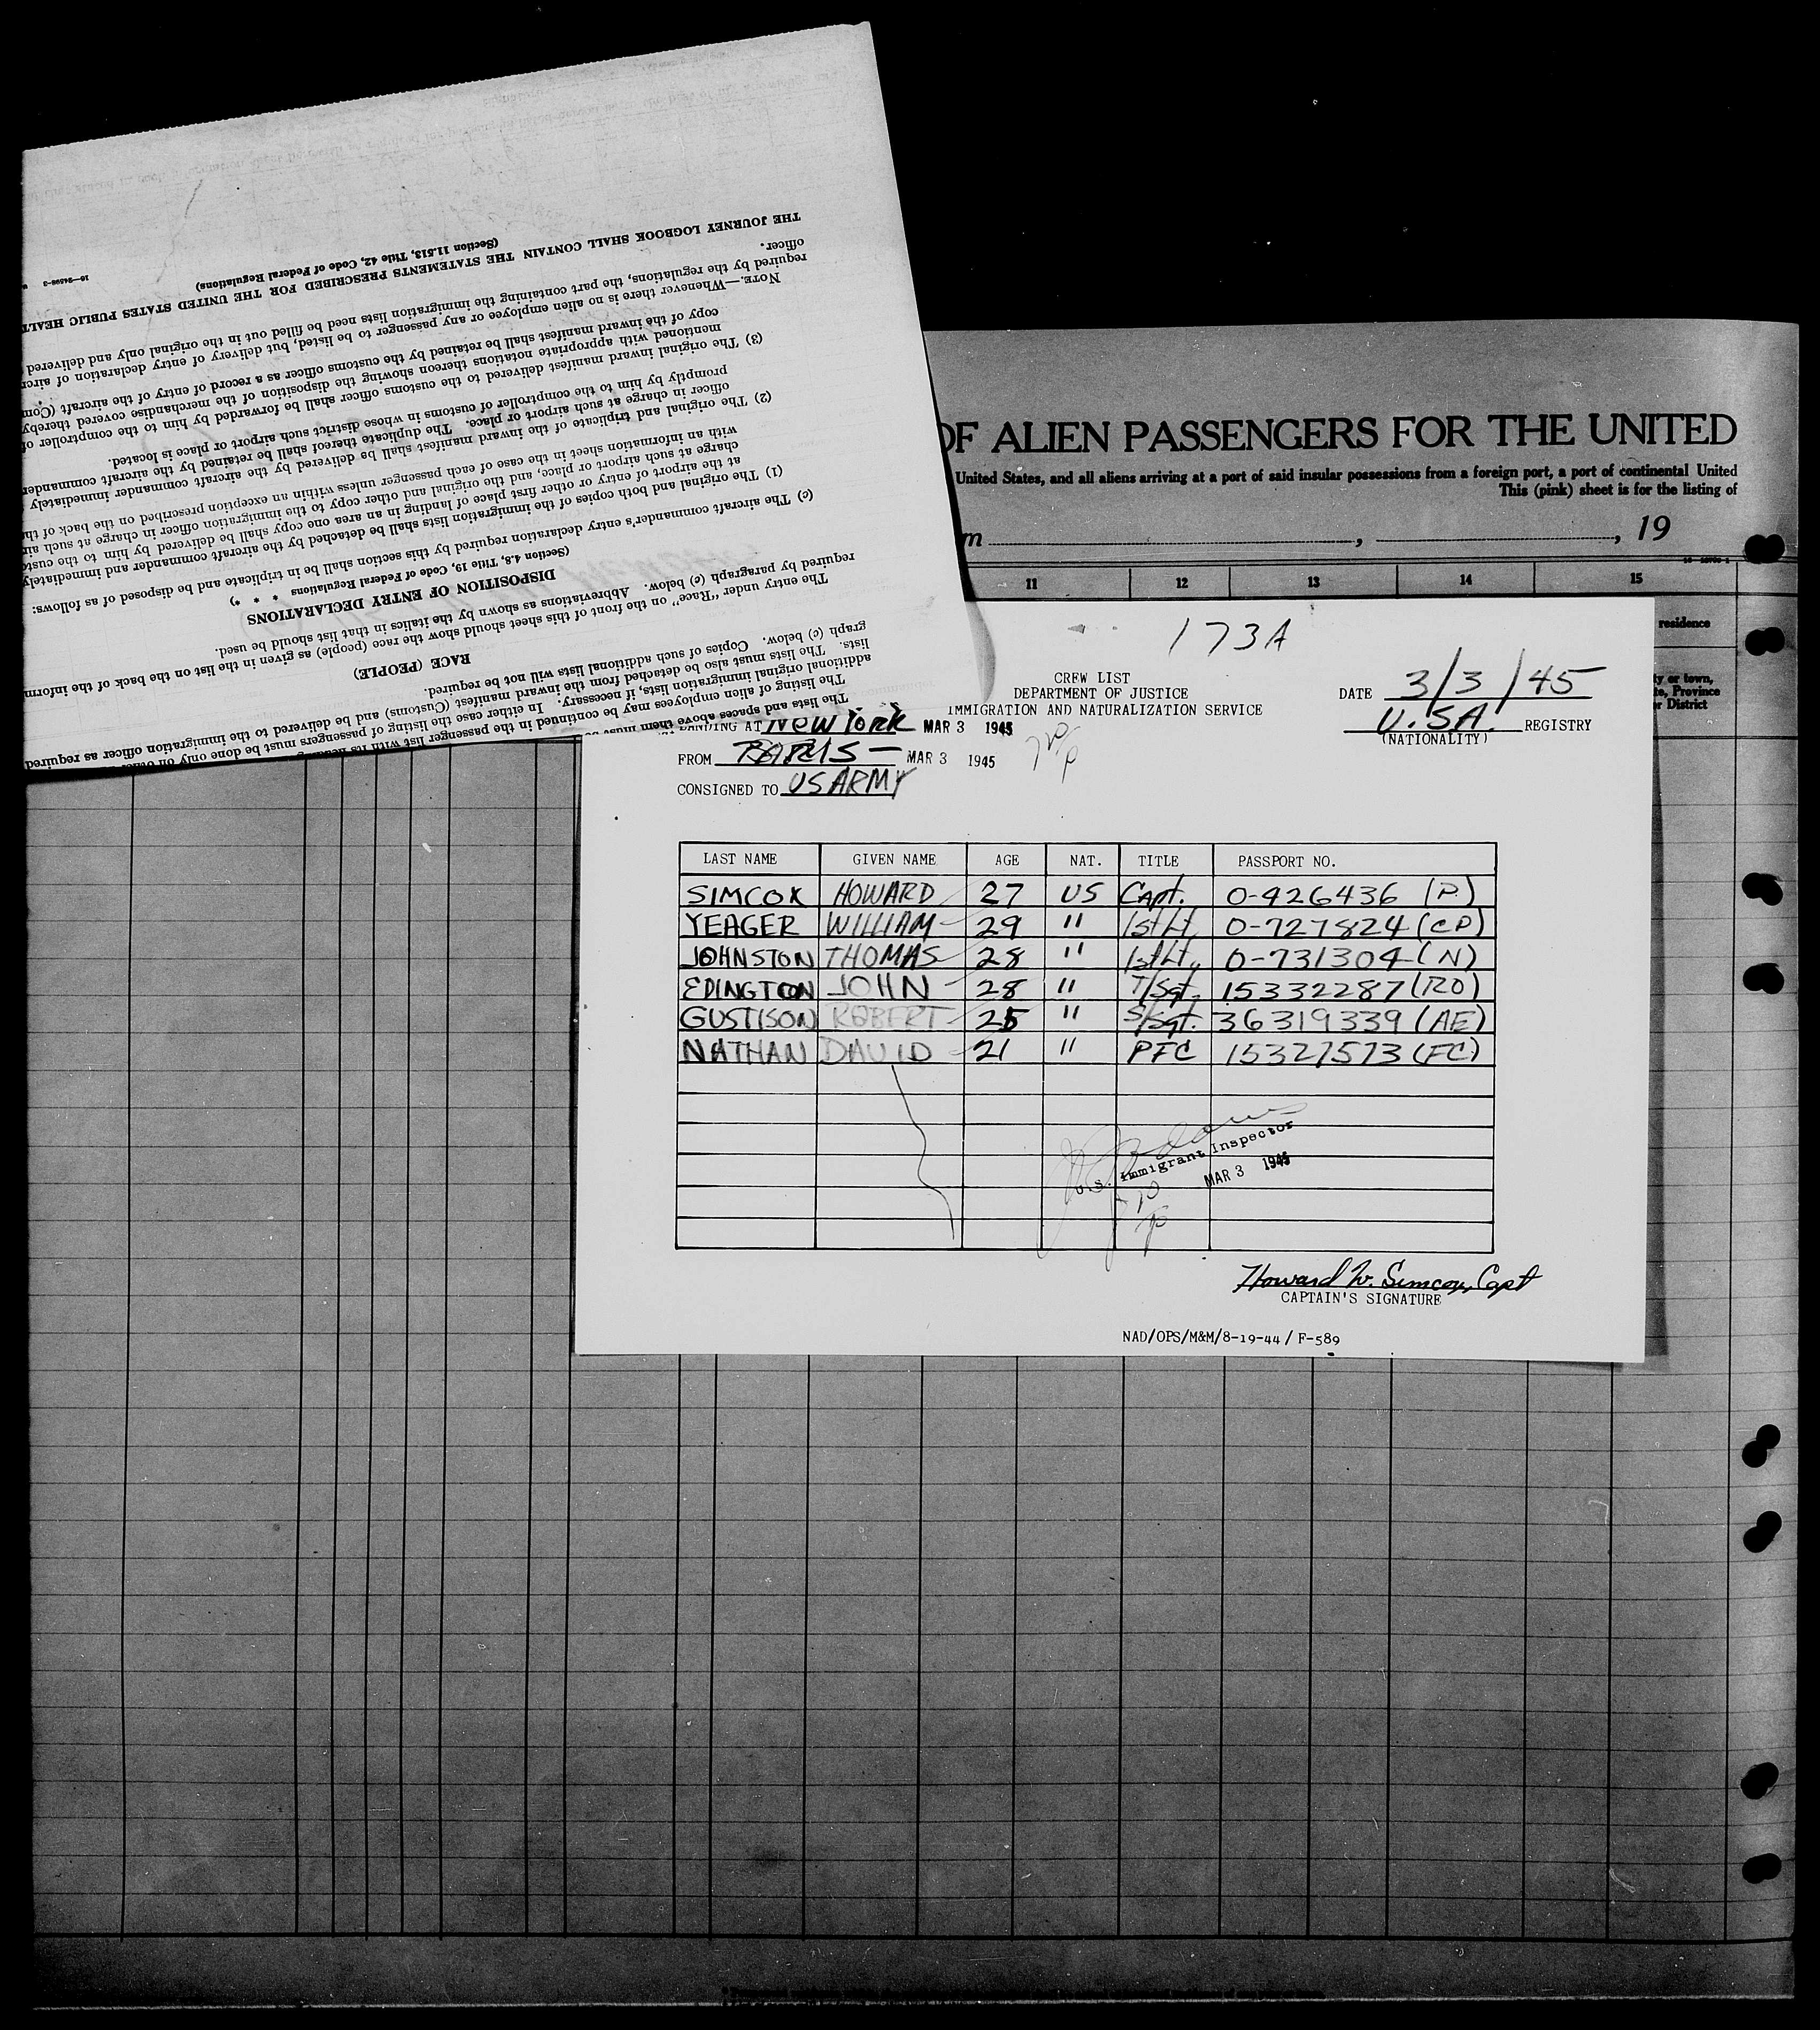 THE JOURNEY LOGBOOK SHALL CONTAIN THE STATEMENTS PRESCRIBED FOR THE UNITED STATES PUBLIC HEALT
(Section 11.513, Title 42, Code of Federal Regulations)
officer.
required by the regulations, the part containing the immigration lists need be filled out in the original only and delivered
NOTE.—Whenever there is no alien employee or any passenger to be listed, but delivery of entry declaration of airc
copy of the inward manifest shall be retained by the customs officer as a record of entry of the aircraft (Com
mentioned with appropriate notations thereon showing the disposition of the merchandise covered thereby
(3) The original inward manifest delivered to the customs officer shall be forwarded by him to the comptroller of
promptly by him to the comptroller of customs in whose district such airport or place is located.
officer in charge at such airport or place. The duplicate thereof shall be retained by the aircraft commander
(2) The original and triplicate of the inward manifest shall be delivered by the aircraft commander immediately
with an information sheet in the case of each passenger unless within an exception prescribed on the back of th
charge at such airport or place, and the original and other copy to the immigration officer in charge at such air
at the airport of entry or other first place of landing in an area one copy shall be delivered by him to the custo
(1) The original and both copies of the immigration lists shall be detached by the aircraft commander and immediately
(c) The aircraft commander's entry declaration required by this section shall be in triplicate and be disposed of as follows:
(Section 4.8, Title 19, Code of Federal Regulations * * *)
DISPOSITION OF ENTRY DECLARATIONS
required by paragraph (e) below. Abbreviations as shown by the italics in that list should be used.
The entry under "Race" on the front of this sheet should show the race (people) as given in the list on the back of the inform
RACE (PEOPLE)
graph (c) below. Copies of such additional lists will not be required.
lists. The lists must also be detached from the inward manifest (Customs) and be delivered to the immigration officer as required
additional original immigration lists, if necessary. In either case the listing of passengers must be done only on other
The listing of alien employees may be continued in the passenger list with its heading
The lists and spaces above them must be
OF ALIEN PASSENGERS FOR THE UNITED
United States, and all aliens arriving at a port of said insular possessions from a foreign port, a port of continental United
This (pink) sheet is for the listing of
m , , 19
11 12 13 14 15
residence
ty or town,
te, Province
or District
173A
CREW LIST
DEPARTMENT OF JUSTICE
IMMIGRATION AND NATURALIZATION SERVICE
DATE 3/3/45
U.SA. REGISTRY
(NATIONALITY)
AT New York MAR 3 1945
FROM PARIS — MAR 3 1945
CONSIGNED TO US ARMY
LAST NAME GIVEN NAME AGE NAT. TITLE PASSPORT NO.
SIMCOX HOWARD 27 US Capt. O-426436 (P)
YEAGER WILLIAM 29 " 1st Lt. O-727824 (CP)
JOHNSTON THOMAS 28 " 1st Lt. O-731304 (N)
EDINGTON JOHN 28 " T/Sgt. 15332287 (RO)
GUSTISON ROBERT 25 " S/Sgt. 36319339 (AE)
NATHAN DAVID 21 " PFC 15327573 (FC)
U.S. Immigrant Inspector
MAR 3 1945
Howard W. Simcox, Capt
CAPTAIN'S SIGNATURE
NAD/OPS/M&M/8-19-44/ F-589